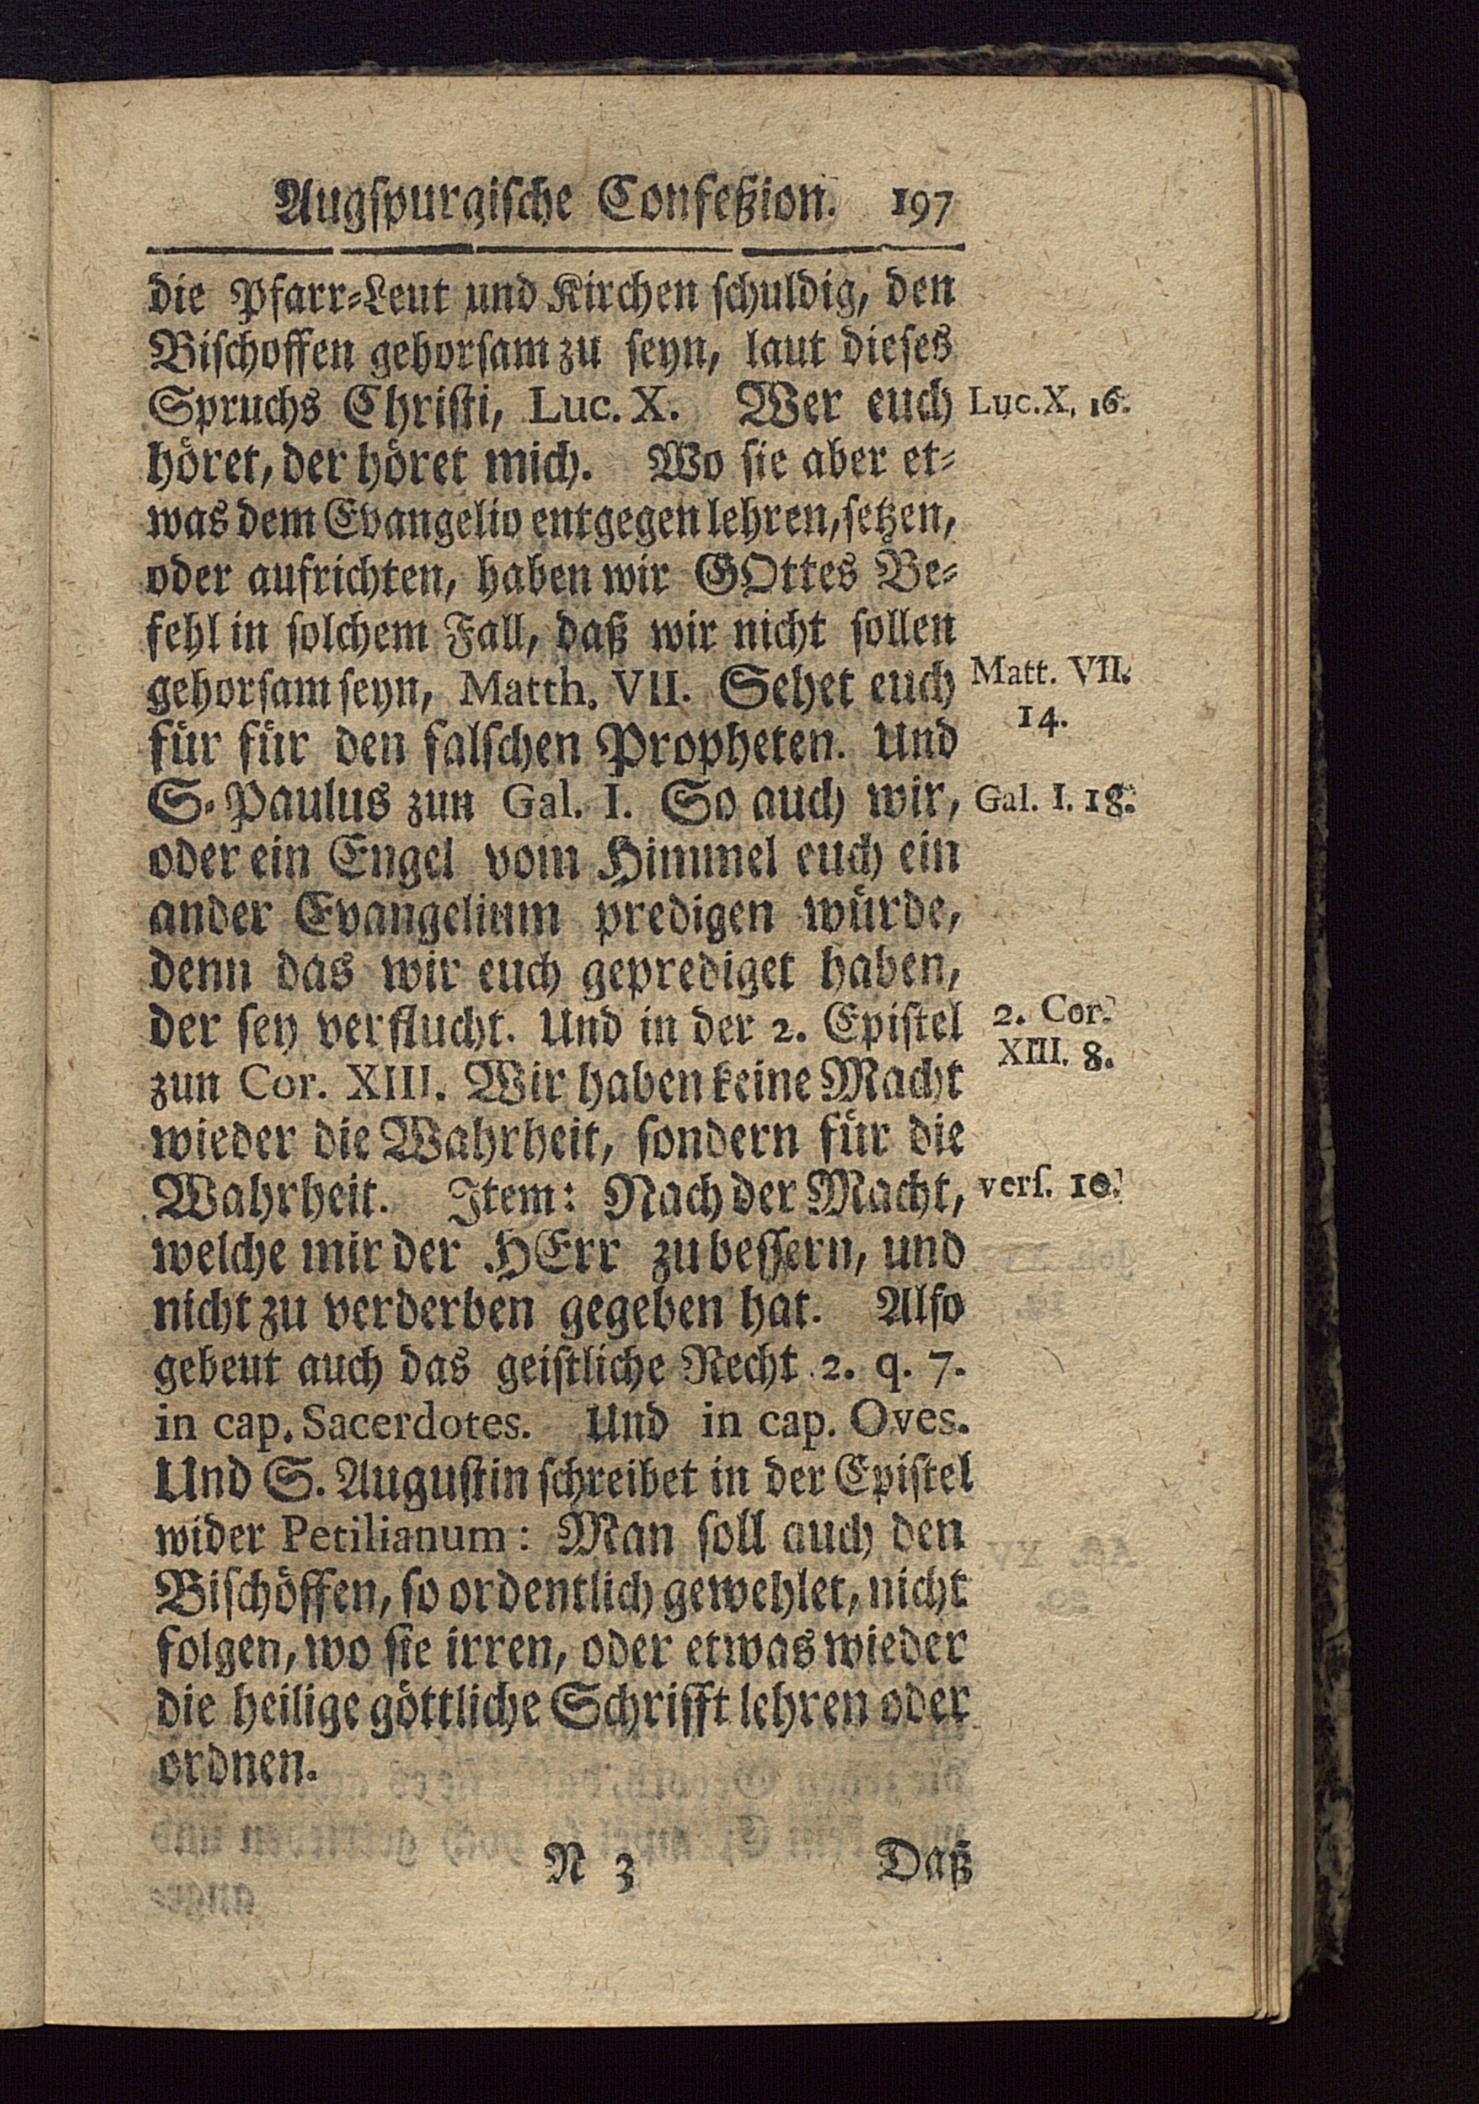 Augspurgische Confeßion. 197
die Pfarr-Leut und Kirchen schuldig, den
Bischoffen gehorsam zu seyn, laut dieses
Spruchs Christi, Luc. X. Wer euch
Luc. X, 16.
höret, der höret mich. Wo sie aber et-
was dem Evangelio entgegen lehren, setzen,
oder aufrichten, haben wir GOttes Be-
fehl in solchem Fall, daß wir nicht sollen
gehorsam seyn, Matth. VII. Sehet euch
Matt. VII.
14.
für für den falschen Propheten. Und
S. Paulus zun Gal. I. So auch wir,
Gal. I. 18.
oder ein Engel vom Himmel euch ein
ander Evangelium predigen würde,
denn das wir euch geprediget haben,
der sey verflucht. Und in der 2. Epistel
2. Cor.
XIII. 8.
zun Cor. XIII. Wir haben keine Macht
wieder die Wahrheit, sondern für die
Wahrheit. Item: Nach der Macht,
vers. 10.
welche mir der HErr zu bessern, und
nicht zu verderben gegeben hat. Also
gebeut auch das geistliche Recht 2. q. 7.
in cap. Sacerdotes. Und in cap. Oves.
Und S. Augustin schreibet in der Epistel
wider Petilianum: Man soll auch den
Bischöffen, so ordentlich gewehlet, nicht
folgen, wo sie irren, oder etwas wieder
die heilige göttliche Schrifft lehren oder
ordnen.
N 3 Daß